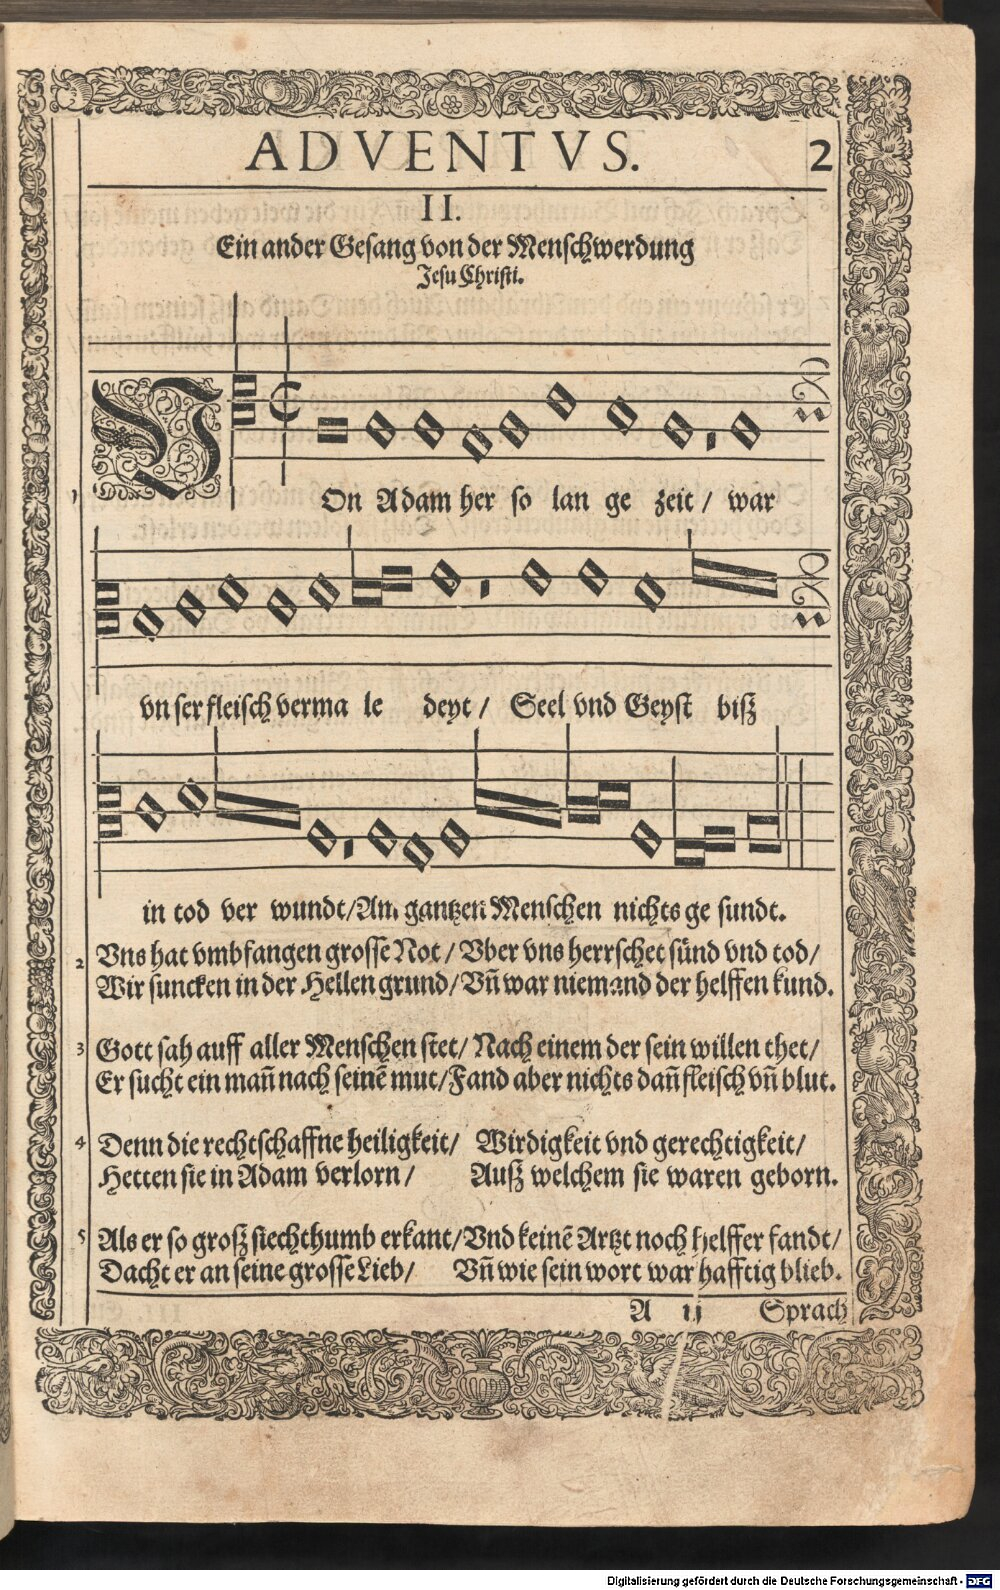 ADVENTVS. 2
II.
Ein ander Gesang von der Menschwerdung
Jesu Christi.
1 VOn Adam her so lan ge zeit / war
vnser fleisch verma le deyt / Seel vnd Geyst biß
in tod ver wundt/Am gantzen Menschen nichts ge sundt.
2 Vns hat vmbfangen grosse Not / Vber vns herrschet sünd vnd tod/
Wir suncken in der Hellen grund/Vn̄ war niemand der helffen kund.
3 Gott sah auff aller Menschen stet/ Nach einem der sein willen thet/
Er sucht ein man̄ nach seinē mut/Fand aber nichts dan̄ fleisch vn̄ blut.
4 Denn die rechtschaffne heiligkeit/ Wirdigkeit vnd gerechtigkeit/
Hetten sie in Adam verlorn / Auß welchem sie waren geborn.
5 Als er so groß siechthumb erkant/Vnd keinē Artzt noch helffer fandt/
Dacht er an seine grosse Lieb/ Vn̄ wie sein wort warhafftig blieb.
A ij Sprach
Digitalisierung gefördert durch die Deutsche Forschungsgemeinschaft - DFG